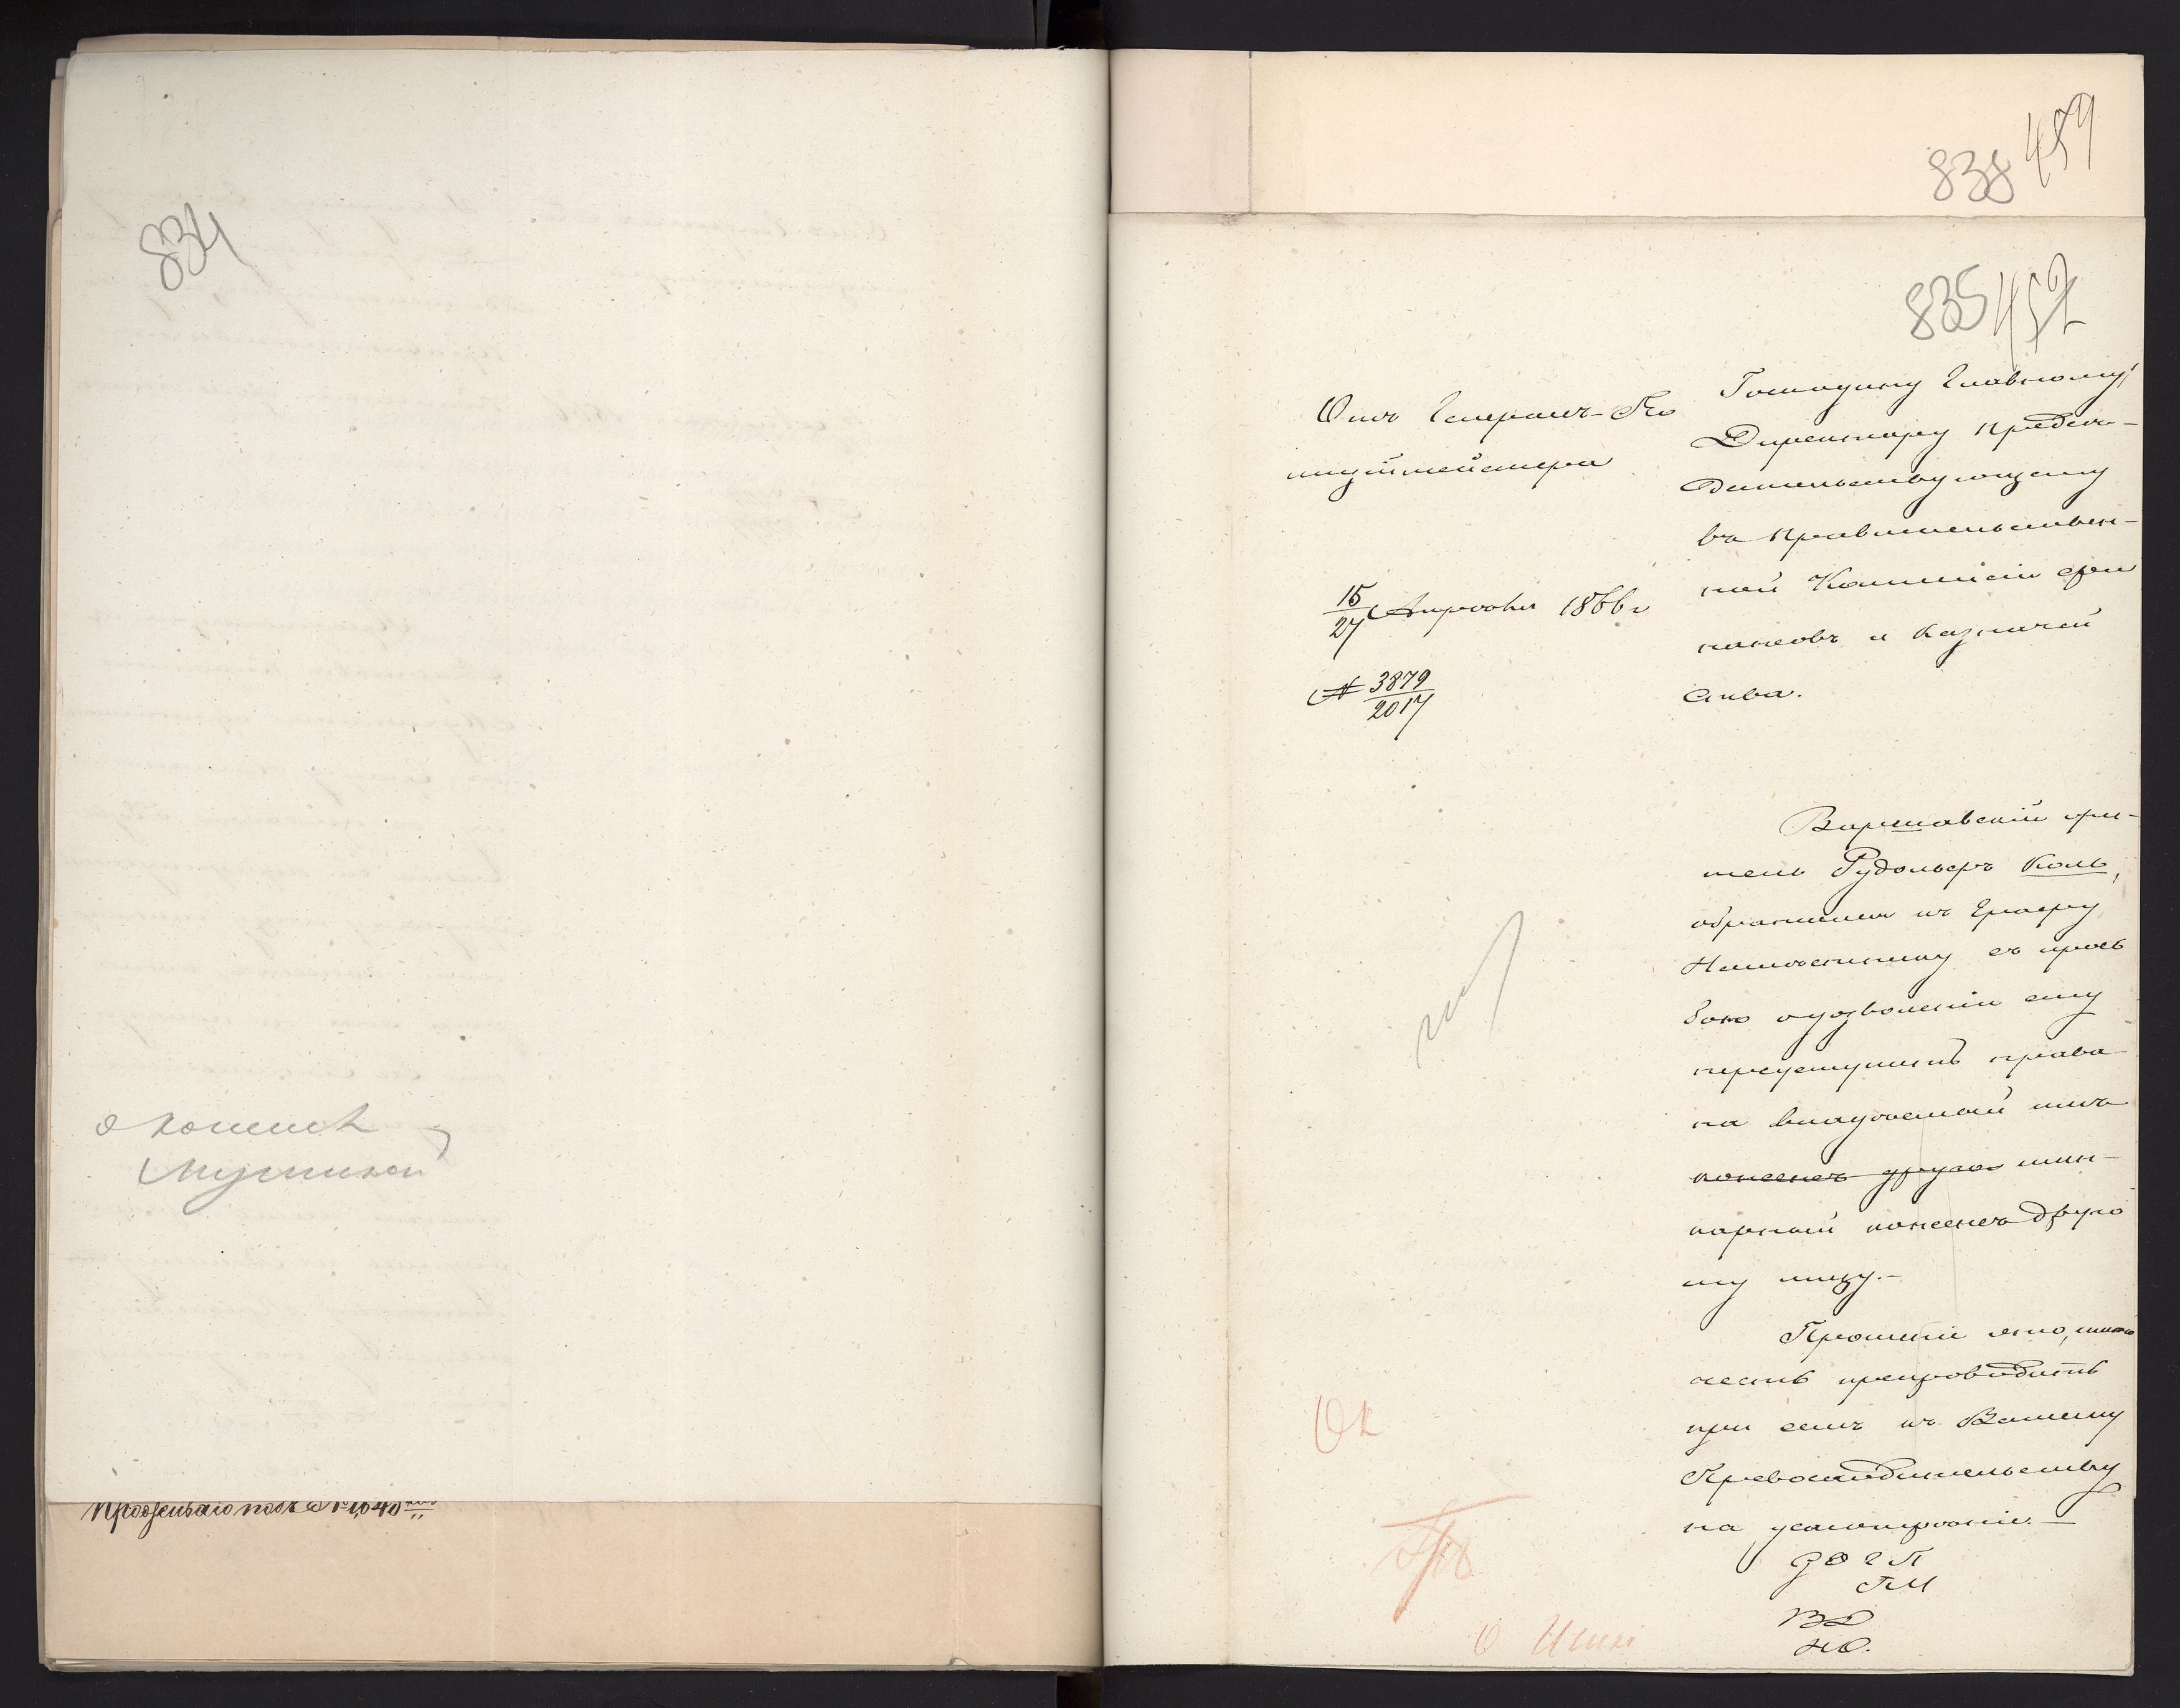 834
Проэженаго подъ
838 459
835 457
Отъ Генералъ-По
лицiймейстера
15/27 Апрѣля 1866 г
№ 3879/2017
Господину Главному
Директору Предсѣ-
дательствующему
въ Правительствен-
ной Коммисiи фи
нансовъ и Казначей
ства.
Варшавскiй жи-
тель Рудольфъ Коль,
обратился къ Графу
Намѣстнику съ прось
бою о дозволенiи ему
переуступить права
на владѣемый имъ
консенсъ другое шин-
карный консенсъ друго
му лицу.-
Прошенiе его, имѣю
честь препроводить
при семъ къ Вашему
Превосходительству
на усмотрѣнiе.-
ГП
ГМ
ВД
НО.